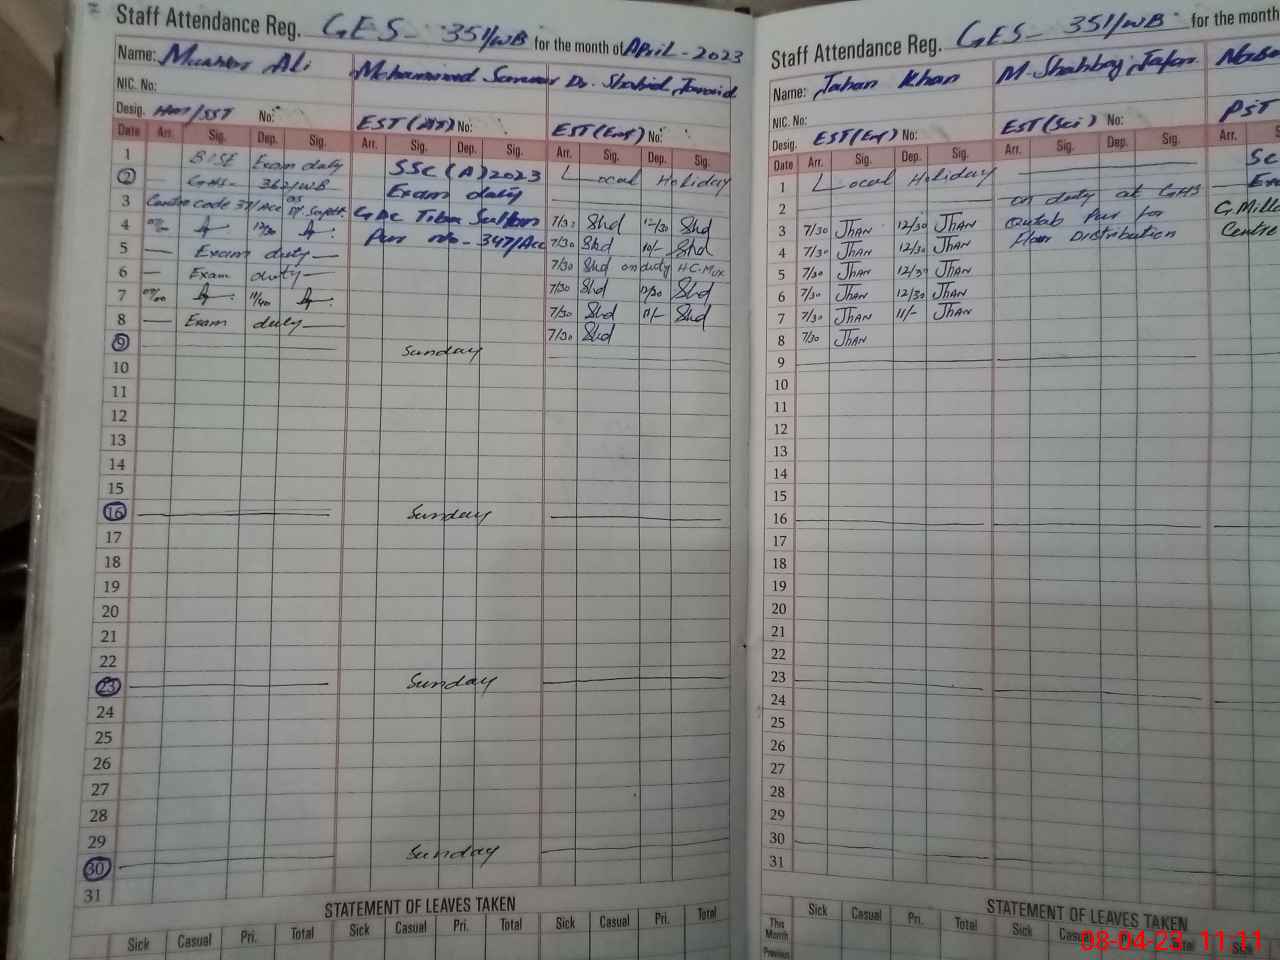 Staff Attendance Reg. GES- 351/WB for the month of April - 2023
Name: Ali Mohammad Dr. Shahid Javaid
NIC. No:
Desig. HM/SST No: EST(AT) No: EST(Eng) No:
Date Arr. Sig. Dep. Sig. Arr. Sig. Dep. Sig. Arr. Sig. Dep. Sig.
1 BISE Exam duty SSC (A) 2023 Local Holiday
2 GHS- 362/WB Exam duty
3 Centre code 37/Acc as 7/30 Shd 12/30 Shd
4 12/30 Pur No- 347/Acc 7/30 Shd 10/- Shd
5 Exam duty 7/30 Shd on duty
6 Exam duty 7/30 Shd 12/30 Shd
7 11/40 7/30 Shd 11/- Shd
8 Exam duty 7/30 Shd
9 Sunday
10
11
12
13
14
15
16 Sunday
17
18
19
20
21
22
23 Sunday
24
25
26
27
28
29
30 Sunday
31
STATEMENT OF LEAVES TAKEN
Sick Casual Pri. Total Sick Casual Pri. Total Sick Casual Pri. Total
Staff Attendance Reg. GES- 351/WB for the month
Name: Jahan Khan M. Shahbaz Jafar
NIC. No:
Desig. EST(Eng) No: EST(Sci) No: PST
Date Arr. Sig. Dep. Sig. Arr. Sig. Dep. Sig. Arr.
1 Local Holiday
2 on duty at GHS
3 7/30 JHAN 12/30 JHAN Qutab Pur for
4 7/30 JHAN 12/30 JHAN Flour Distribution Centre
5 7/30 JHAN 12/30 JHAN
6 7/30 JHAN 12/30 JHAN
7 7/30 JHAN 11/- JHAN
8 7/30 JHAN
9
10
11
12
13
14
15
16
17
18
19
20
21
22
23
24
25
26
27
28
29
30
31
STATEMENT OF LEAVES TAKEN
This Month Sick Casual Pri. Total Sick Casual Pri. Total Sick
Previous
08-04-23 11:11